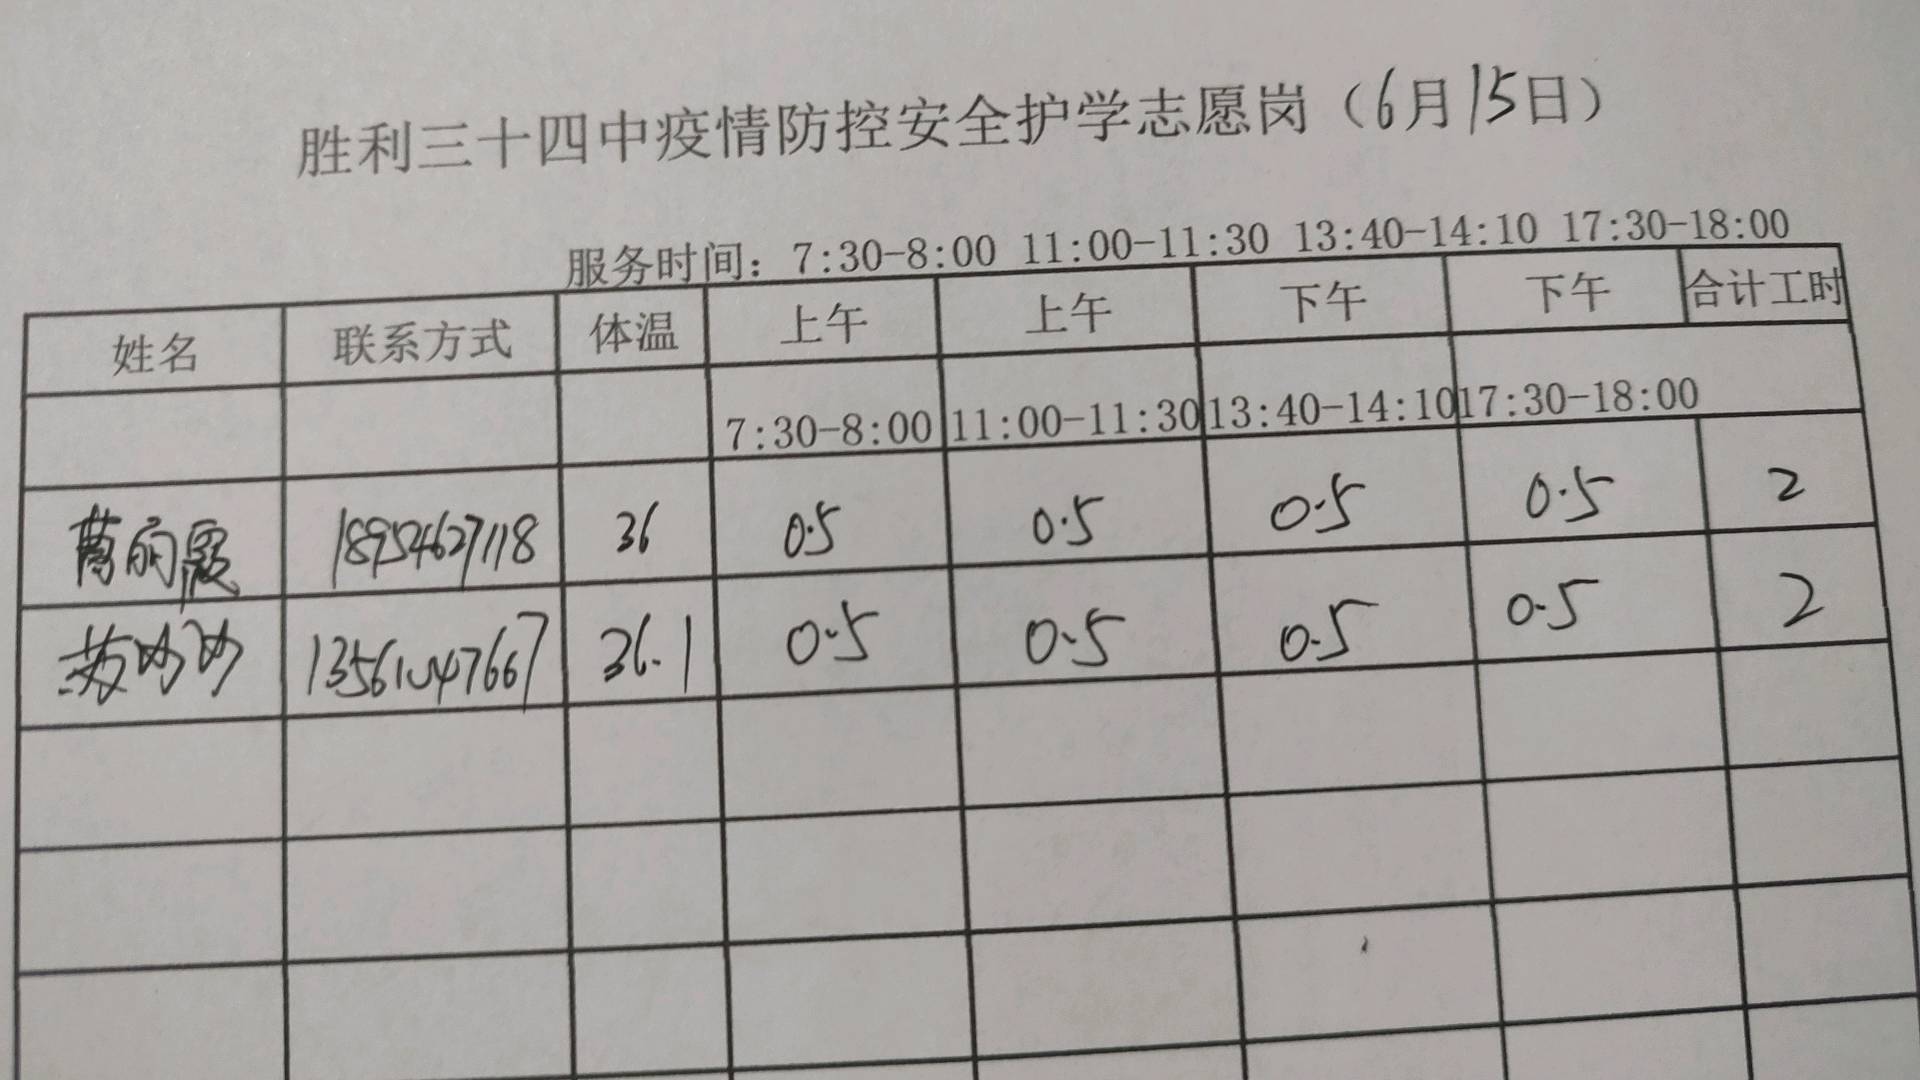 胜利三十四中疫情防控安全护学志愿岗（6月15日）
服务时间：7:30-8:00 11:00-11:30 13:40-14:10 17:30-18:00
姓名 联系方式 体温 上午 上午 下午 下午 合计工时
7:30-8:00 11:00-11:30 13:40-14:10 17:30-18:00
曹丽霞 18954627118 36 0.5 0.5 0.5 0.5 2
苏妙妙 13561047667 36.1 0.5 0.5 0.5 0.5 2